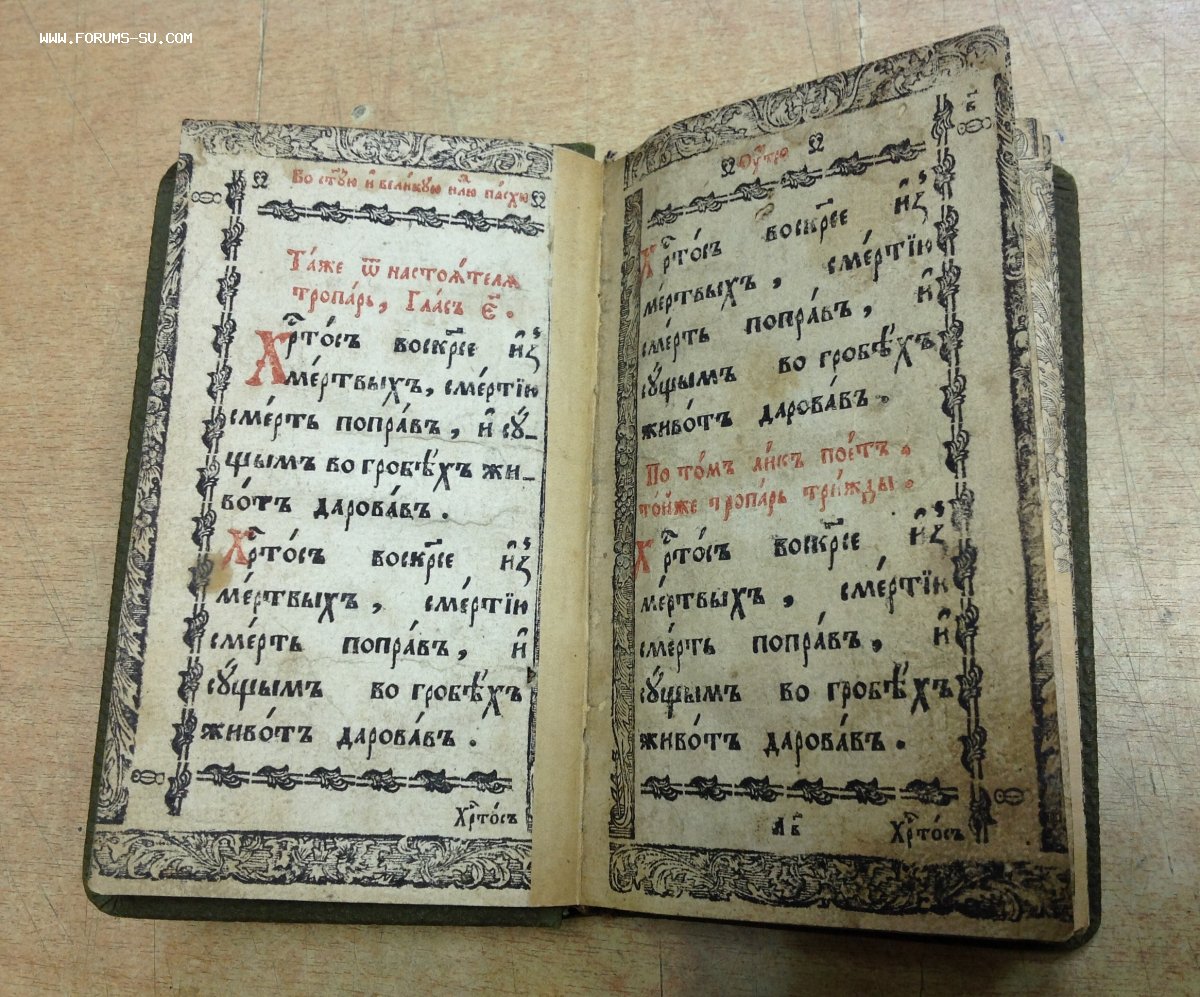 WWW.FORUMS-SU.COM
Во ст҃ꙋю и҆ вели́кꙋю нлⷣю па́схи
Та́же ѿ настоѧ́телѧ
тропа́рь, Гла́съ є҃.
Хрⷭ҇то́съ воскрⷭ҇се и҆з̾
ме́ртвыхъ, сме́ртїю
сме́рть попра́въ, и҆ сꙋ́_
щымъ во гробѣ́хъ жи_
во́тъ дарова́въ.
Хрⷭ҇то́съ воскрⷭ҇се и҆з̾
ме́ртвыхъ, сме́ртїю
сме́рть попра́въ, и҆
сꙋ́щымъ во гробѣ́хъ
живо́тъ дарова́въ.
Хрⷭ҇то́съ
Оу҆́тро
в҃
Хрⷭ҇то́съ воскрⷭ҇се и҆з̾
ме́ртвыхъ, сме́ртїю
сме́рть попра́въ, и҆
сꙋ́щымъ во гробѣ́хъ
живо́тъ дарова́въ.
По то́мъ ли́къ пое́тъ,
то́йже тропа́рь три́жды.
Хрⷭ҇то́съ воскрⷭ҇се и҆з̾
ме́ртвыхъ, сме́ртїю
сме́рть попра́въ, и҆
сꙋ́щымъ во гробѣ́хъ
живо́тъ дарова́въ.
А в҃ Хрⷭ҇то́съ